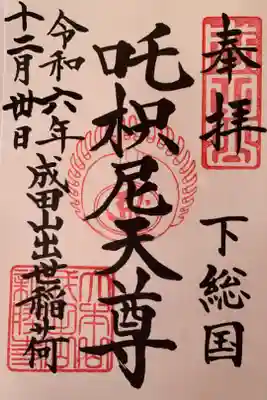 奉拝
下総国
吒枳尼天尊
成田山出世稲荷
令和六年
十二月廿日